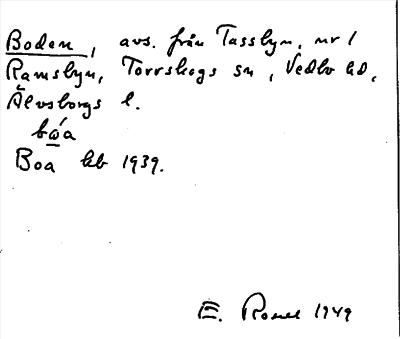 Boden, avs. från Tassbyn, nr 1
Ramsbyn, Torrskogs sn, Vedbo hd,
Älvsborgs l.
bώa
Boa kb 1939.
E. 1949